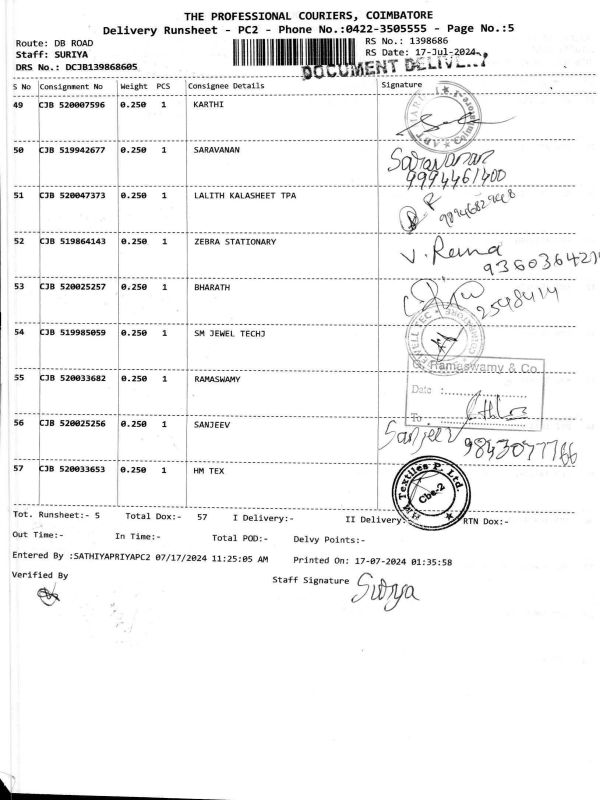 THE PROFESSIONAL COURIERS, COIMBATORE
Delivery Runsheet - PC2 - Phone No.:0422-3505555 - Page No.:5
Route: DB ROAD
RS No.: 1398686
Staff: SURIYA
RS Date: 17-Jul-2024
DRS No.: DCJB139868605
DOCUMENT DELIVERY
S No Consignment No Weight PCS Consignee Details Signature
49 CJB 520007596 0.250 1 KARTHI
50 CJB 519942677 0.250 1 SARAVANAN
Saravanan
9994461400
51 CJB 520047373 0.250 1 LALITH KALASHEET TPA
52 CJB 519864143 0.250 1 ZEBRA STATIONARY
V. Rema
53 CJB 520025257 0.250 1 BHARATH
2548414
54 CJB 519985059 0.250 1 SM JEWEL TECHJ
55 CJB 520033682 0.250 1 RAMASWAMY
Ramaswamy & Co.
Date :
To
56 CJB 520025256 0.250 1 SANJEEV
Sanjeev
9843077766
57 CJB 520033653 0.250 1 HM TEX
HM Textiles P. Ltd.
Cbe-2
Tot. Runsheet:- 5 Total Dox:- 57 I Delivery:- II Delivery:- RTN Dox:-
Out Time:- In Time:- Total POD:- Delvy Points:-
Entered By :SATHIYAPRIYAPC2 07/17/2024 11:25:05 AM Printed On: 17-07-2024 01:35:58
Verified By
Staff Signature Suriya